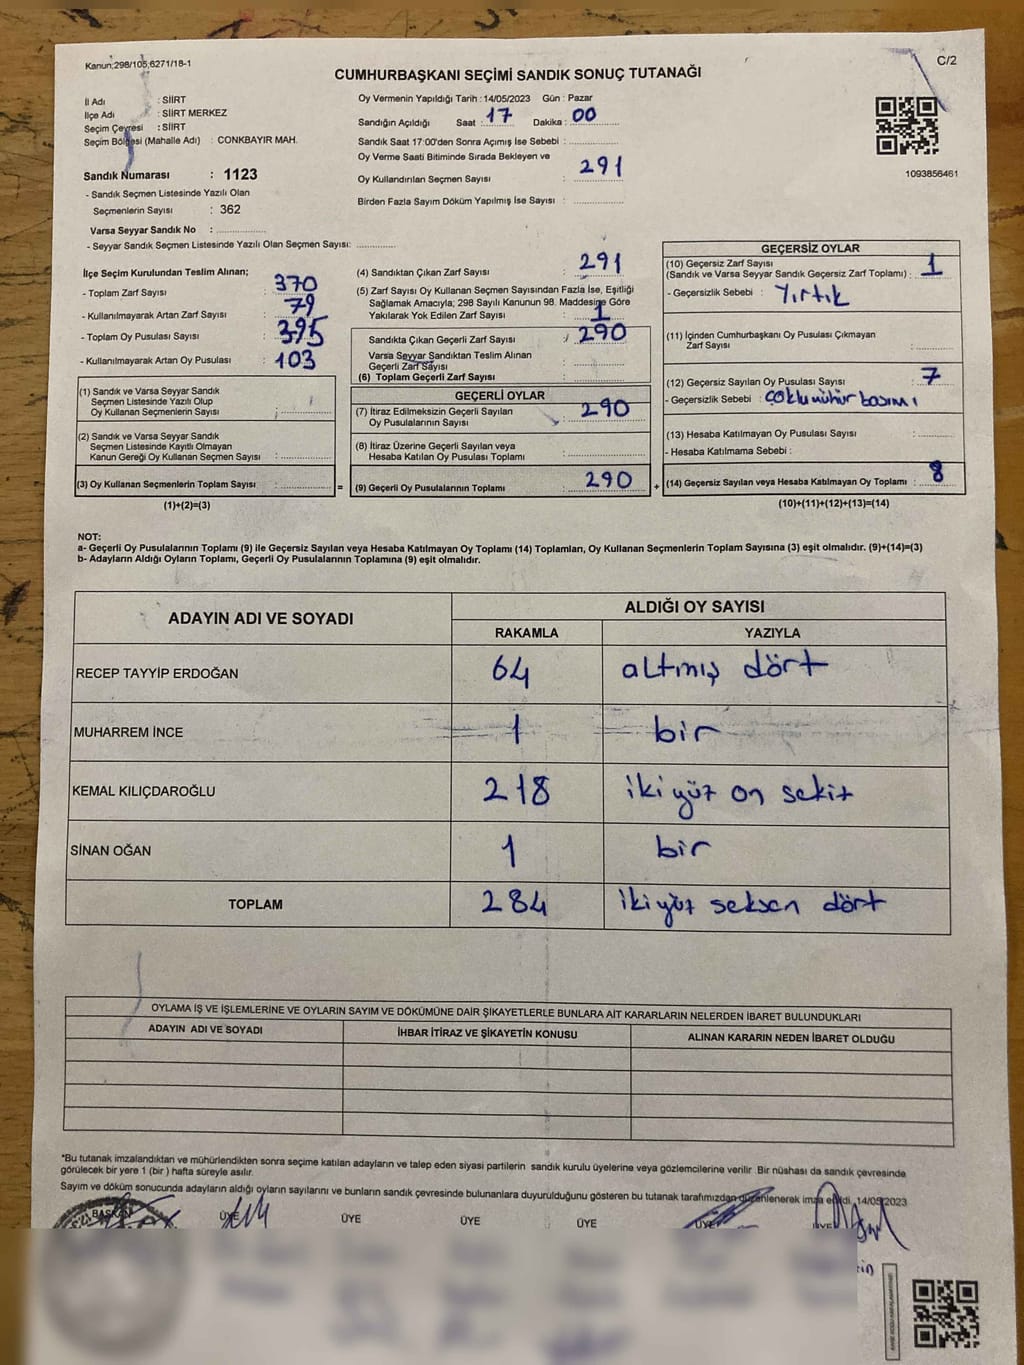 Kanun;298/105,6271/18-1
C/2
CUMHURBAŞKANI SEÇİMİ SANDIK SONUÇ TUTANAĞI
İl Adı : SİİRT
İlçe Adı : SİİRT MERKEZ
Seçim Çevresi : SİİRT
Seçim Bölgesi (Mahalle Adı) : CONKBAYIR MAH.
Sandık Numarası : 1123
- Sandık Seçmen Listesinde Yazılı Olan
Seçmenlerin Sayısı : 362
Varsa Seyyar Sandık No : ..............
- Seyyar Sandık Seçmen Listesinde Yazılı Olan Seçmen Sayısı: ............
Oy Vermenin Yapıldığı Tarih : 14/05/2023 Gün : Pazar
Sandığın Açıldığı Saat : 17 Dakika : 00
Sandık Saat 17:00'den Sonra Açımış İse Sebebi : ..............
Oy Verme Saati Bitiminde Sırada Bekleyen ve
Oy Kullandırılan Seçmen Sayısı : 291
Birden Fazla Sayım Döküm Yapılmış İse Sayısı : ..............
1093856461
İlçe Seçim Kurulundan Teslim Alınan;
- Toplam Zarf Sayısı : 370
- Kullanılmayarak Artan Zarf Sayısı : 79
- Toplam Oy Pusulası Sayısı : 395
- Kullanılmayarak Artan Oy Pusulası : 103
(1) Sandık ve Varsa Seyyar Sandık
Seçmen Listesinde Yazılı Olup
Oy Kullanan Seçmenlerin Sayısı : ..............
(2) Sandık ve Varsa Seyyar Sandık
Seçmen Listesinde Kayıtlı Olmayan
Kanun Gereği Oy Kullanan Seçmen Sayısı : ..............
(3) Oy Kullanan Seçmenlerin Toplam Sayısı : .............. =
(1)+(2)=(3)
(4) Sandıktan Çıkan Zarf Sayısı : 291
(5) Zarf Sayısı Oy Kullanan Seçmen Sayısından Fazla İse, Eşitliği
Sağlamak Amacıyla; 298 Sayılı Kanunun 98. Maddesine Göre
Yakılarak Yok Edilen Zarf Sayısı : 1
Sandıkta Çıkan Geçerli Zarf Sayısı : 290
Varsa Seyyar Sandıktan Teslim Alınan
Geçerli Zarf Sayısı : ..............
(6) Toplam Geçerli Zarf Sayısı : ..............
GEÇERLİ OYLAR
(7) İtiraz Edilmeksizin Geçerli Sayılan
Oy Pusulalarının Sayısı : 290
(8) İtiraz Üzerine Geçerli Sayılan veya
Hesaba Katılan Oy Pusulası Toplamı : ..............
(9) Geçerli Oy Pusulalarının Toplamı : 290 +
GEÇERSİZ OYLAR
(10) Geçersiz Zarf Sayısı
(Sandık ve Varsa Seyyar Sandık Geçersiz Zarf Toplamı) : 1
- Geçersizlik Sebebi : Yırtık
(11) İçinden Cumhurbaşkanı Oy Pusulası Çıkmayan
Zarf Sayısı : ..............
(12) Geçersiz Sayılan Oy Pusulası Sayısı : 7
- Geçersizlik Sebebi : çoklu mühür basımı
(13) Hesaba Katılmayan Oy Pusulası Sayısı : ..............
- Hesaba Katılmama Sebebi :
(14) Geçersiz Sayılan veya Hesaba Katılmayan Oy Toplamı : 8
(10)+(11)+(12)+(13)=(14)
NOT:
a- Geçerli Oy Pusulalarının Toplamı (9) ile Geçersiz Sayılan veya Hesaba Katılmayan Oy Toplamı (14) Toplamları, Oy Kullanan Seçmenlerin Toplam Sayısına (3) eşit olmalıdır. (9)+(14)=(3)
b- Adayların Aldığı Oyların Toplamı, Geçerli Oy Pusulalarının Toplamına (9) eşit olmalıdır.
ADAYIN ADI VE SOYADI
ALDIĞI OY SAYISI
RAKAMLA YAZIYLA
RECEP TAYYİP ERDOĞAN 64 altmış dört
MUHARREM İNCE 1 bir
KEMAL KILIÇDAROĞLU 218 iki yüz on sekiz
SİNAN OĞAN 1 bir
TOPLAM 284 iki yüz seksen dört
OYLAMA İŞ VE İŞLEMLERİNE VE OYLARIN SAYIM VE DÖKÜMÜNE DAİR ŞİKAYETLERLE BUNLARA AİT KARARLARIN NELERDEN İBARET BULUNDUKLARI
ADAYIN ADI VE SOYADI İHBAR İTİRAZ VE ŞİKAYETİN KONUSU ALINAN KARARIN NEDEN İBARET OLDUĞU
*Bu tutanak imzalandıktan ve mühürlendikten sonra seçime katılan adayların ve talep eden siyasi partilerin sandık kurulu üyelerine veya gözlemcilerine verilir Bir nüshası da sandık çevresinde
görülecek bir yere 1 (bir ) hafta süreyle asılır.
Sayım ve döküm sonucunda adayların aldığı oyların sayılarını ve bunların sandık çevresinde bulunanlara duyurulduğunu gösteren bu tutanak tarafımızdan düzenlenerek imza edildi. 14/05/2023
BAŞKAN ÜYE ÜYE ÜYE ÜYE ÜYE ÜYE